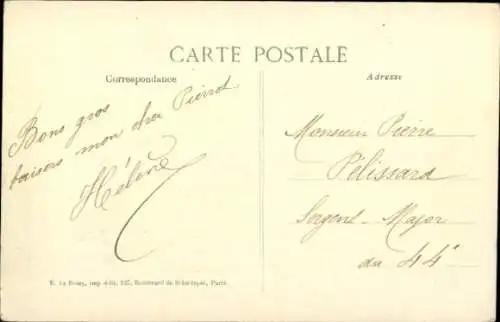 CARTE POSTALE
Correspondance
Adresse
Bons gros
baisers mon cher Pierrot
Hélène
Monsieur Pierre
Pélissard
Sergent-Major
du 44e
E. Le Deley, imp.-édit., 127, Boulevard de Sébastopol, Paris.